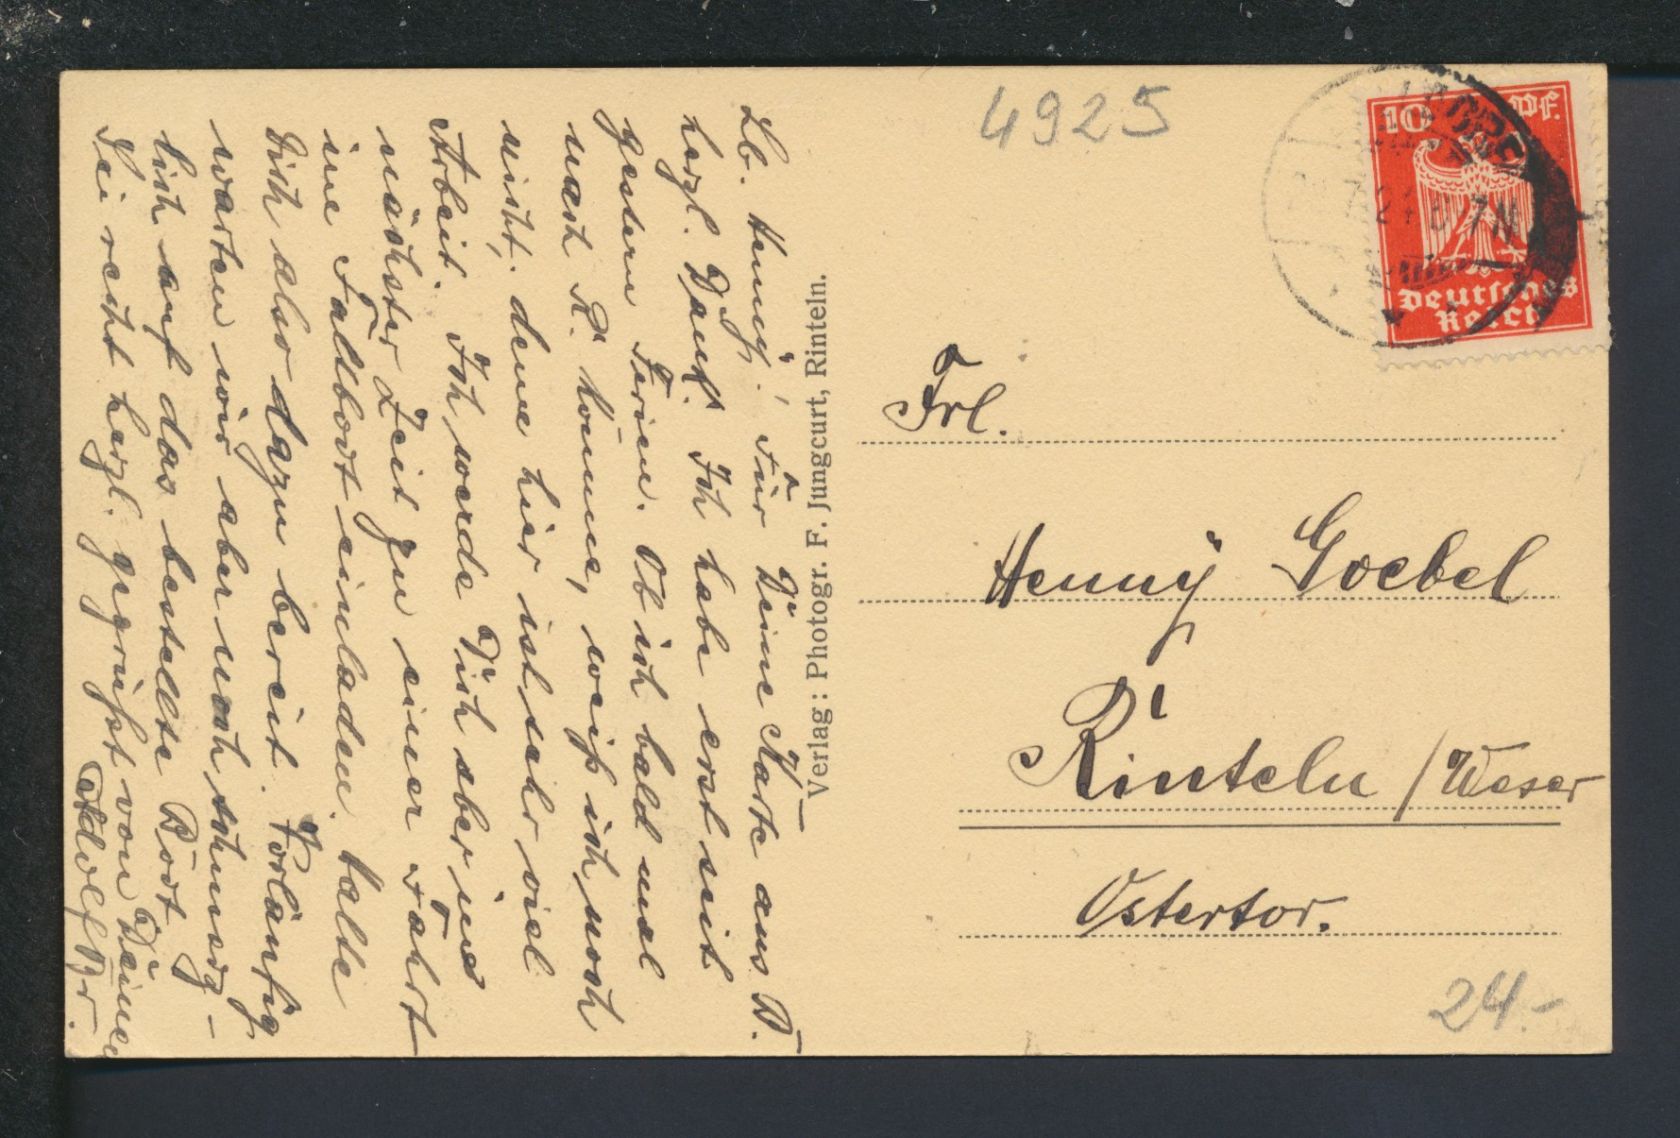 Lb. Henny! Für Deine Karte aus B.
herzl. Dank. Ich habe erst seit
gestern Ferien. Ob ich bald mal
nach R. komme, weiß ich noch
nicht, denn hier ist sehr viel
Arbeit. Ich werde Dich aber in
nächster Zeit zu einer Fahrt
im Faltboot einladen. Halte
Dich also dazu bereit. Vorläufig
warten wir aber noch
lich auf das bestellte Boot.
Sei recht herzl. gegrüßt von Deinem
Adolf Br.
Verlag: Photogr. F. Jungcurt, Rinteln.
4925
10 Pf.
Deutsches
Reich
Frl.
Henny Goebel
Rinteln / Weser
Ostertor.
24.-